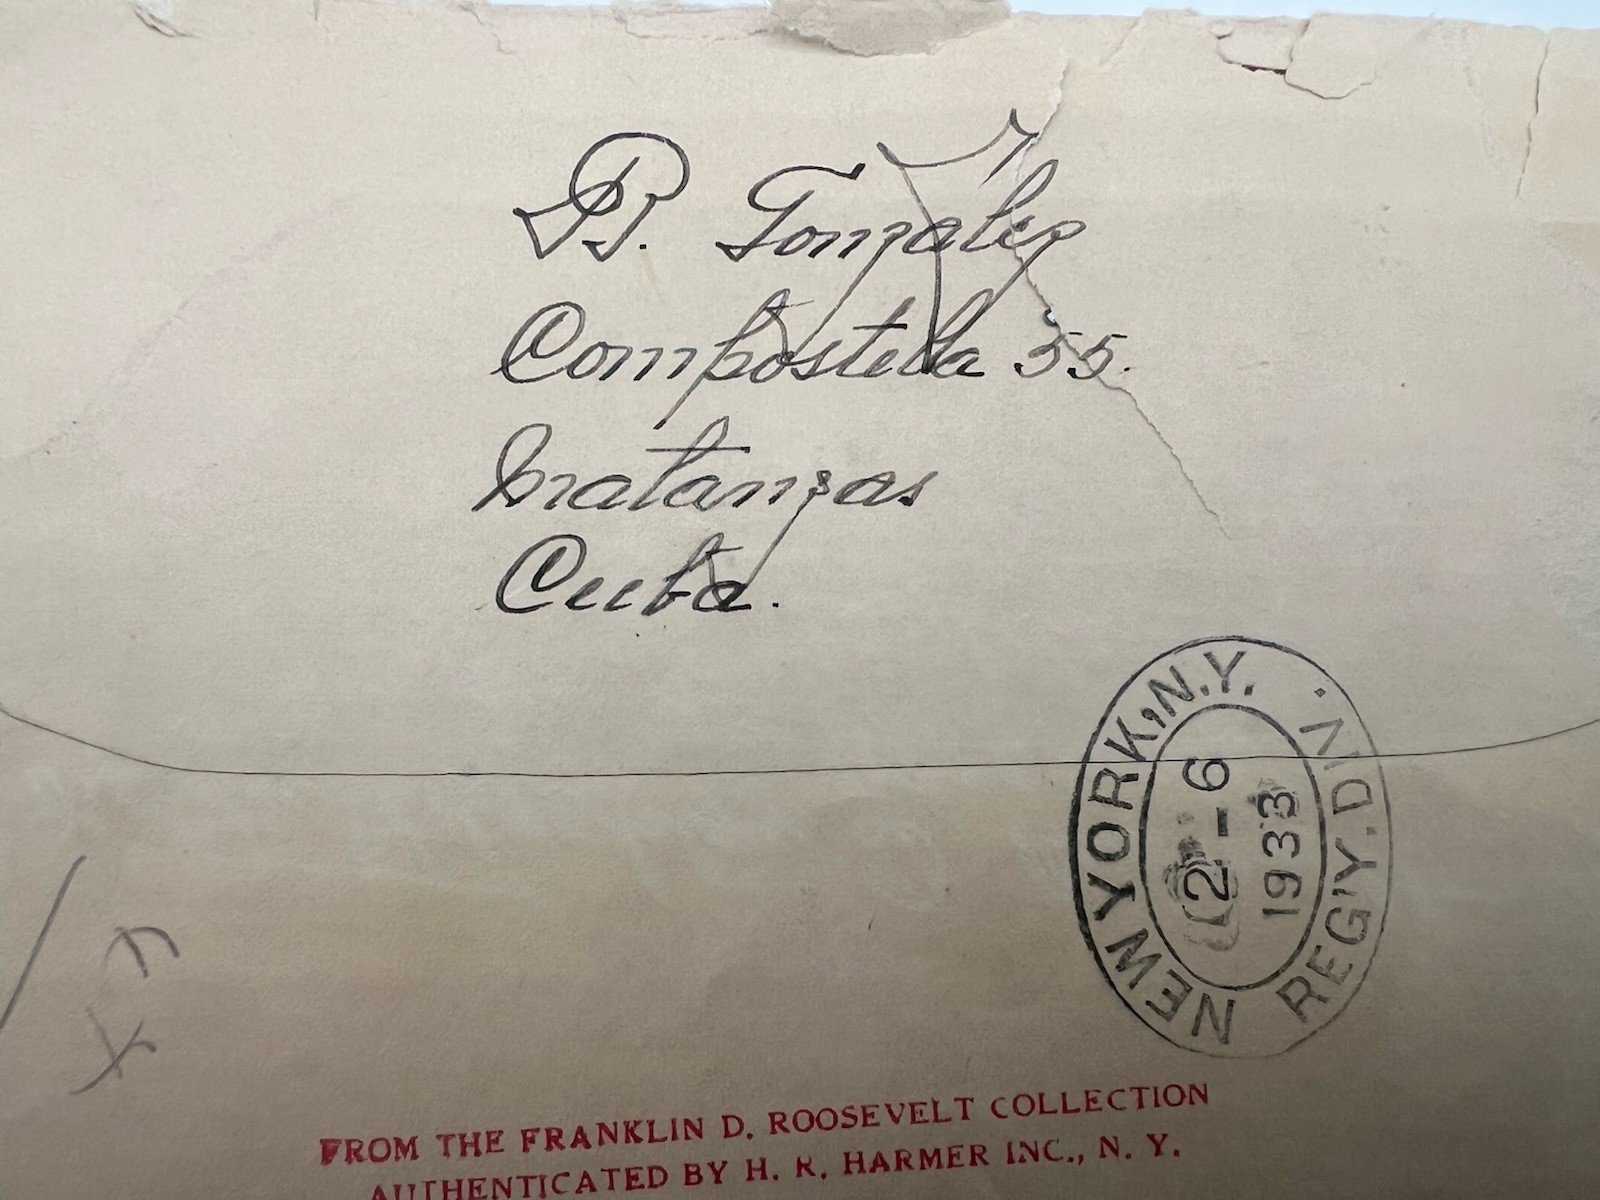 B. Gonzalez
Compostela 55.
Matanzas
Cuba.
NEW YORK, N.Y. REG'Y. DIV.
12-6
1933
FROM THE FRANKLIN D. ROOSEVELT COLLECTION
AUTHENTICATED BY H. R. HARMER INC., N. Y.